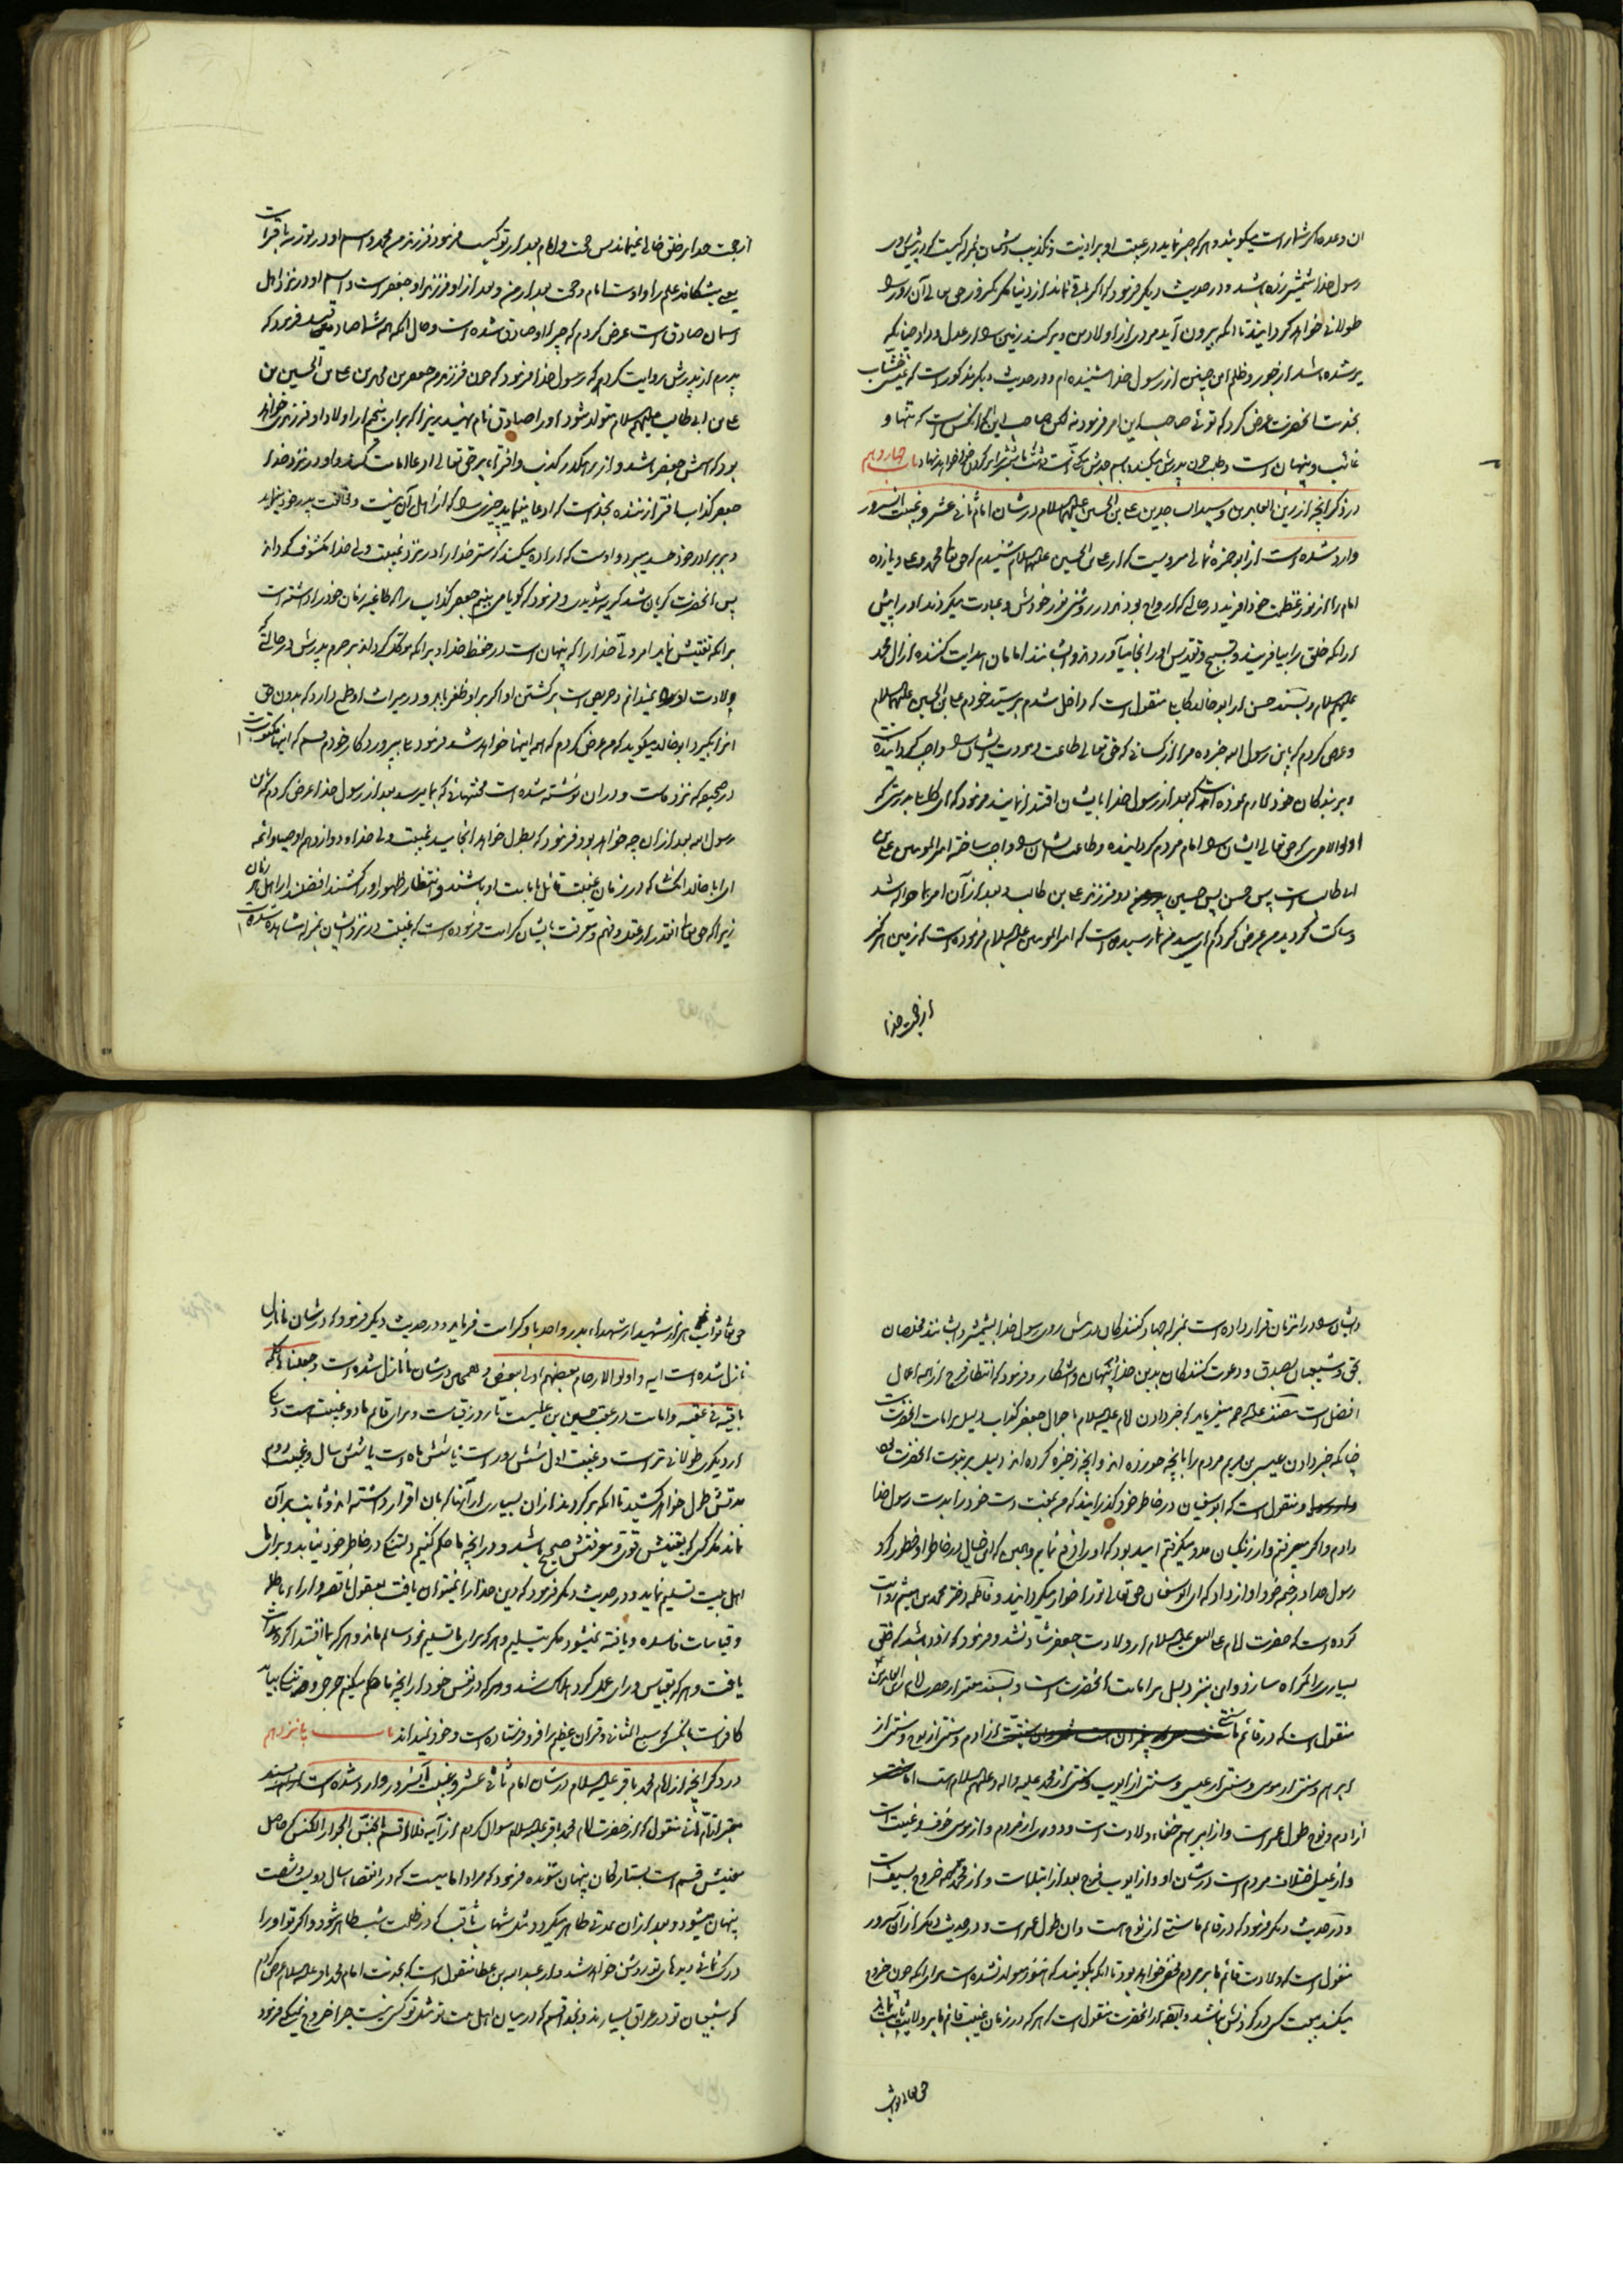 ان وعده کر شما راست میگویند و هر که صبر نماید در غیبت او بر اذیت و تکذیب ایشان بمنزله کسیست که در پیش روی
رسول خدا شمشیر زده باشد و در حدیث دیگر فرمود که اگر باقی نماند از دنیا مگر یکروز حق تعالی آن روز را
طولانی خواهد گردانید تا آنکه بیرون آید مردی از اولاد من و پر کند زمین را از عدل و داد چنانکه
پر شده باشد از جور و ظلم این چنین از رسول خدا شنیده ام و در حدیث دیگر مذکور است که
بخدمت آنحضرت عرض کرد که توئی صاحب این امر فرمود نه لکن صاحب این امر آنکس است که تنها و
غائب و پنهان است و طلب خون پدرش میکند باب چهاردهم
در ذکر آنچه از زین العابدین و سید الساجدین علی بن الحسین علیهما السلام در شان امام ثانی عشر و غیبت آنسرور
وارد شده است از ابو حمزه ثمالی مرویست که از علی بن الحسین علیهما السلام شنیدم که حق تعالی محمد و علی و یازده
امام را از نور عظمت خود آفرید در حالی که ارواح بودند در روشنی نور خودش و عبادت میکردند او را پیش
از آنکه خلق را بیافریند و تسبیح و تقدیس او را بجا میآوردند و ایشانند امامان هدایت کننده از آل محمد
علیهم السلام و بسند حسن از ابو خالد کابلی منقول است که داخل شدم بر سید خودم علی بن الحسین علیهما السلام
و عرض کردم که یا بن رسول الله خبر ده مرا از کسانی که حق تعالی طاعت و مودت ایشان را واجب گردانیده
و بر بندگان خود لازم نموده است که بعد از رسول خدا بایشان اقتدا نمایند فرمود که ای کابلی بدرستی که
اولوالامری که حق تعالی ایشان را امام مردم گردانیده و طاعت ایشان را واجب ساخته امیر المومنین علی بن
ابی طالب است پس حسن پس حسین دو فرزند علی بن ابی طالب و بعد از آن امر بما حواله شد
و ساکت گردید من عرض کردم که ای سید من بما رسیده است که امیر المومنین علیه السلام فرموده است که زمین هرگز
از حجت خدا
از حجت خدا بر خلق خالی نمیماند پس حجت و امام بعد از تو کیست فرمود فرزندم محمد و اسم او در توریة باقر است
یعنی میشکافد علم را و اوست امام و حجت بعد از من و بعد از او فرزند او جعفر است و اسم او در نزد اهل
آسمان صادق است عرض کردم که چرا او صادق شده است و حال آنکه همه شما صادقید فرمود که
پدرم از پدرش روایت کرد که رسول خدا فرمود که چون فرزندم جعفر بن محمد بن علی بن الحسین بن
علی بن ابی طالب علیهم السلام متولد شود او را صادق نام نهید زیرا که برای پنجم از اولاد او فرزندی خواهد
بود که اسمش جعفر باشد و از راه کذب و افترا بر حق تعالی ادعای امامت کند و او در نزد خدا
جعفر کذاب افترا زننده بخداست که ادعا مینماید چیزی را که از اهل آن نیست و مخالفت پدر خود مینماید
و ببرادر خود حسد میبرد و اوست که اراده میکند که ستر خدا را در نزد غیبت ولی خدا مکشوف گرداند
پس آنحضرت گریان شد گریه شدیدی و فرمود که گویا می بینم جعفر کذاب را که طاغیه زمان خود را داشته است
بر آنکه تفتیش نماید امر ولی خدا را که پنهان است در حفظ خدا و بر آنکه موکل گرداند بر حرم پدرش در حالتی که
ولادت او را نمیداند و حریص است بر کشتن او اگر بر او ظفر یابد و در میراث او طمع دارد که بدون حق
آنرا بگیرد ابو خالد میگوید که من عرض کردم که همه اینها خواهد شد فرمود بلی بپروردگار خودم قسم که اینها مکتوبست
در صحیفه که نزد ماست و در آن نوشته شده است محنتهائی که بما میرسد بعد از رسول خدا عرض کردم که یا بن
رسول الله بعد از آن چه خواهد بود فرمود که بطول خواهد انجامید غیبت ولی خدا و دوازدهم اوصیاء و ائمه
ای ابا خالد آنکسانی که در زمان غیبت قائل بامامت او باشند و انتظار ظهور او را کشند افضلند از اهل هر زمان
زیرا که حق تعالی آنقدر از عقل و فهم و معرفت بایشان کرامت فرموده است که غیبت در نزد ایشان بمنزله مشاهده شده است
و ایشان را در آنزمان قرار داده است بمنزله جهاد کنندگان در پیش روی رسول خدا بشمشیر و ایشانند مخلصان
بحق و شیعیان بصدق و دعوت کنندگان بدین خدا پنهان و آشکار و فرمود که انتظار فرج از همه اعمال
افضل است مصنف علیه الرحمه میفرماید که خبر دادن امام علیه السلام باحوال جعفر کذاب دلیل بر امامت آنحضرت است
چنانکه خبر دادن عیسی بن مریم مردم را بآنچه خورده اند و آنچه ذخیره کرده اند دلیل بر نبوت آنحضرت بود
و منقول است که ابو سفیان در خاطر خود گذرانید که من بعبث دست خود را بدست رسول خدا
دادم و اگر میرفتم و از زنگیان مدد میگرفتم امید بود که او را دفع نمایم و همین که این خیال در خاطر او خطور کرد
رسول خدا در خیمه خود آواز داد که ای ابو سفیان حق تعالی تو را خوار میگردانید و فاطمه دختر محمد بن هیثم روایت
کرده است که حضرت امام علی النقی علیه السلام از ولادت جعفر شاد نشد و فرمود که زود باشد که خلق
بسیاری را گمراه سازد و این نیز دلیل بر امامت آنحضرت است و بسند معتبر از حضرت امام زین العابدین
منقول است که در قائم ما سنتی از آدم و سنتی از نوح و سنتی از
ابراهیم و سنتی از موسی و سنتی از عیسی و سنتی از ایوب و سنتی از محمد علیه و آله و علیهم السلام هست اما
از آدم و نوح طول عمر است و از ابراهیم خفاء ولادت است و دوری از مردم و از موسی خوف و غیبت است
و از عیسی اختلاف مردم است در شان او و از ایوب فرج بعد از ابتلاست و از محمد خروج بسیف است
و در حدیث دیگر فرمود که در قائم ما سنتی از نوح هست و آن طول عمر است و در حدیث دیگر از آن سرور
منقول است که ولادت قائم ما بر مردم مخفی خواهد بود تا آنکه بگویند که هنوز متولد نشده است برای آنکه چون خروج
میکند بیعت کسی در گردنش نباشد و ایضا از آنحضرت منقول است که هر که در زمان غیبت قائم ما بر ولایت ما ثابت بماند
حق تعالی ثواب
حق تعالی ثواب هزار شهید از شهداء بدر و احد باو کرامت فرماید و در حدیث دیگر فرمود که در شان ما نازل
نازل شده است آیه و اولوا الارحام بعضهم اولی ببعض و همچنین در شان ما نازل شده است وجعلها کلمة
باقیة فی عقبه و امامت در عقب حسین بن علیست تا روز قیامت و برای قائم ما دو غیبت است یکی
از دیگری طولانی تر است و غیبت اول شش روز است یا شش ماه است یا شش سال و غیبت دوم
مدتش بطول خواهد کشید تا آنکه بر گردند از آن بسیاری از آنها که بآن اقرار داشته اند و ثابت بر آن
نماند مگر کسی که یقینش قوی و معرفتش صحیح باشد و در آنچه ما حکم کنیم دلتنگی در خاطر خود نیابد و برای ما
اهل بیت تسلیم نماید و در حدیث دیگر فرمود که دین خدا را نمیتوان یافت بعقول ناقصه و آراء باطله
و قیاسات فاسده و یافته نمیشود مگر بتسلیم و هر که برای ما تسلیم نمود سالم ماند و هر که بما اقتدا کرد هدایت
یافت و هر که بقیاس و رای عمل کرد هلاک شد و هر که در نفس خود از آنچه ما حکم میکنیم حرجی و دلتنگی بیابد
کافر است بآنکس که سبع المثانی و قرآن عظیم را فرو فرستاده است و خود نمیداند باب پانزدهم
در ذکر آنچه از امام محمد باقر علیه السلام در شان امام ثانی عشر و غیبت آنسرور وارد شده است بسند
معتبر از ام هانی منقول که از حضرت امام محمد باقر علیه السلام سوال کردم از آیه فلا اقسم بالخنس الجوار الکنس که حاصل
معنیش قسم است بستارگان پنهان شونده فرمود که مراد امامیست که در انقضاء سال دویست و شصت
پنهان میشود و بعد از آن مدتی ظاهر میگردد مثل شهاب ثاقب که در ظلمت شب ظاهر شود و اگر تو او را
درک نمائی دیدهای تو روشن خواهد شد و از عبد الله بن عطا منقول است که بخدمت امام محمد باقر علیه السلام عرض کردم
که شیعیان تو در عراق بسیارند و بخدا قسم که در میان اهل بیت تو مثل تو کسی نیست چرا خروج نمیکنی فرمود